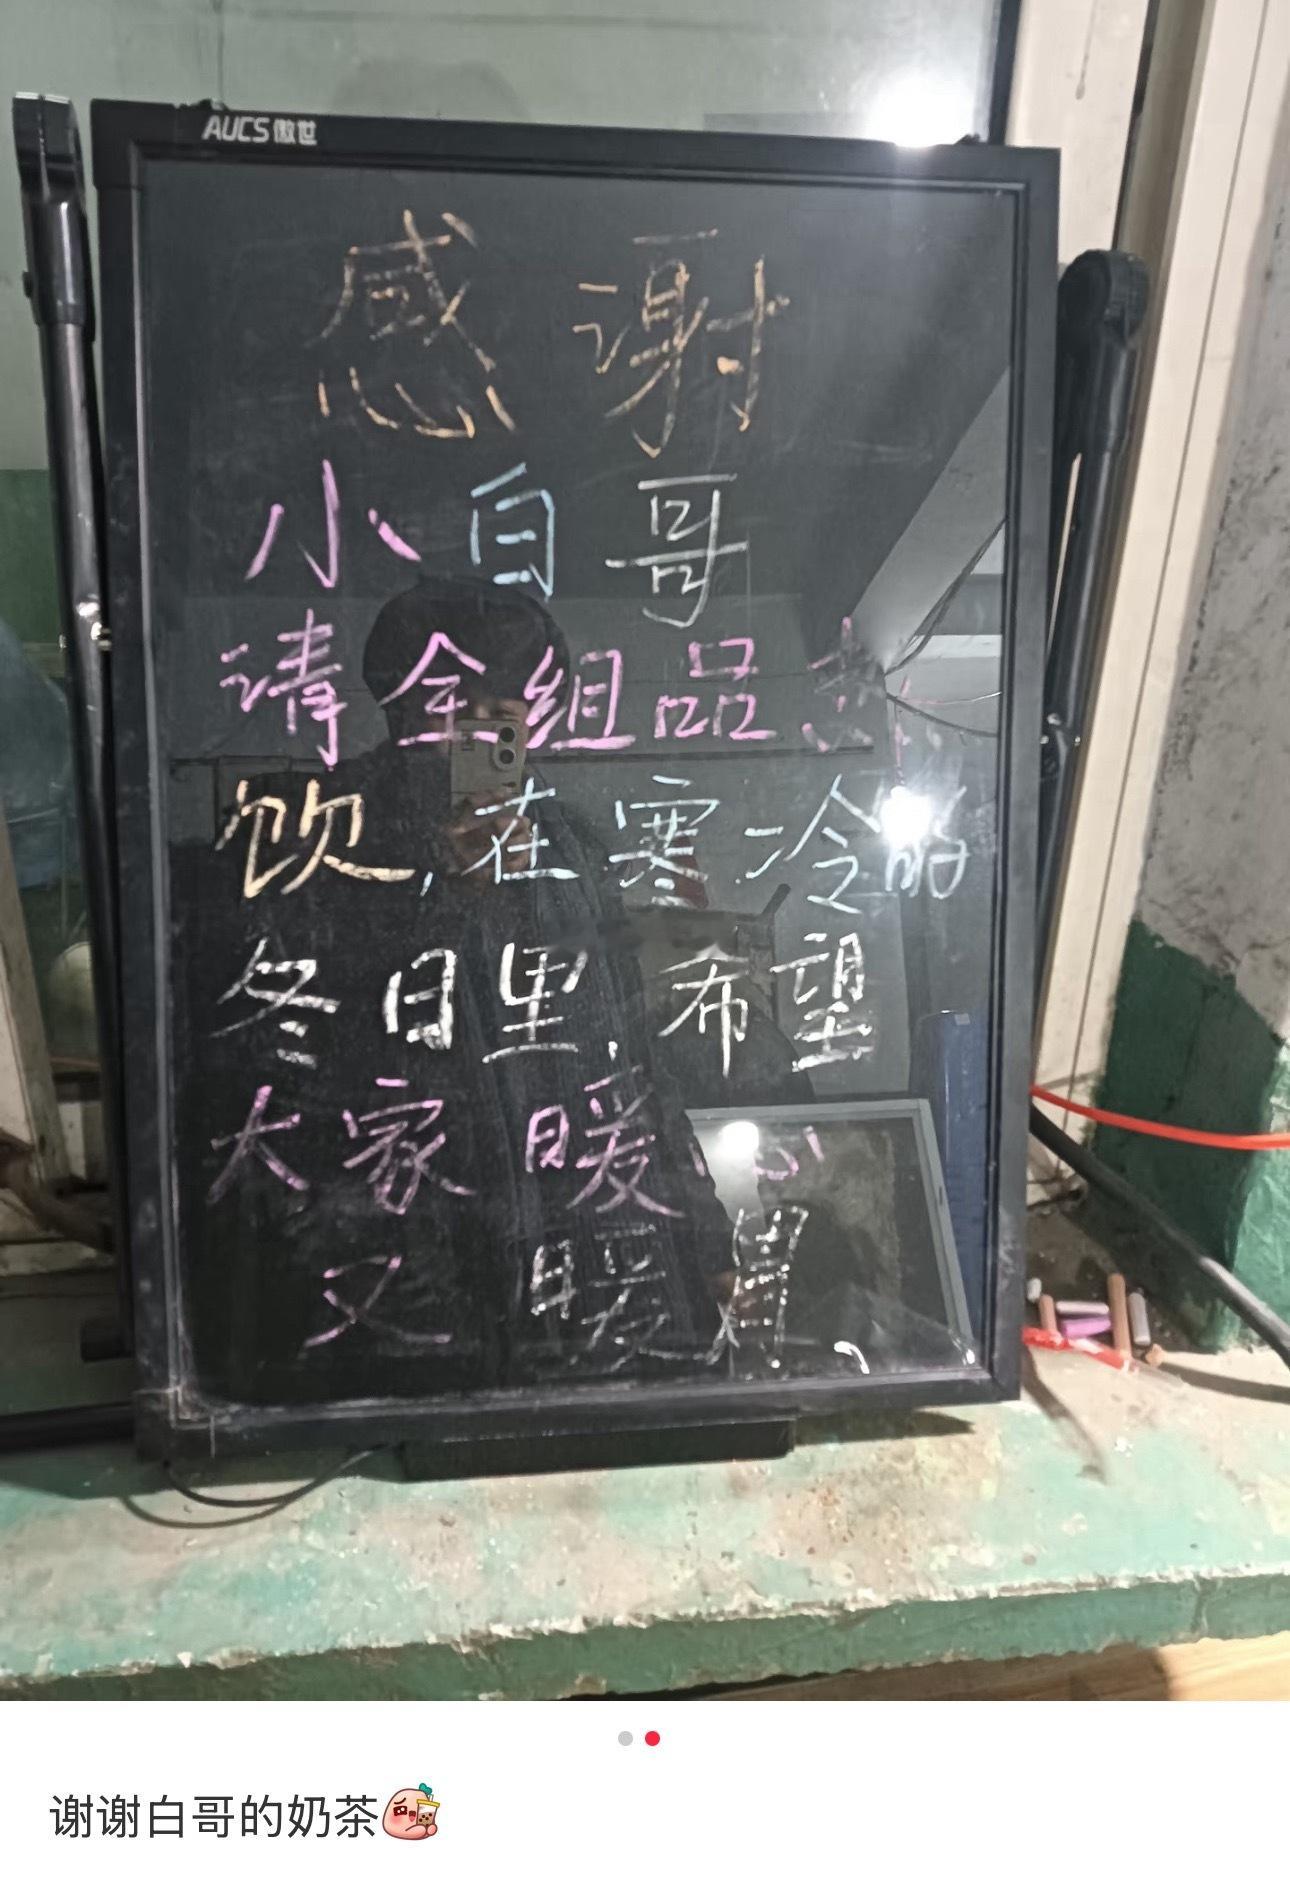 AUCS傲世
感谢
小白哥
请全组品热
饮,在寒冷的
冬日里,希望
大家暖心
又暖胃、
谢谢白哥的奶茶